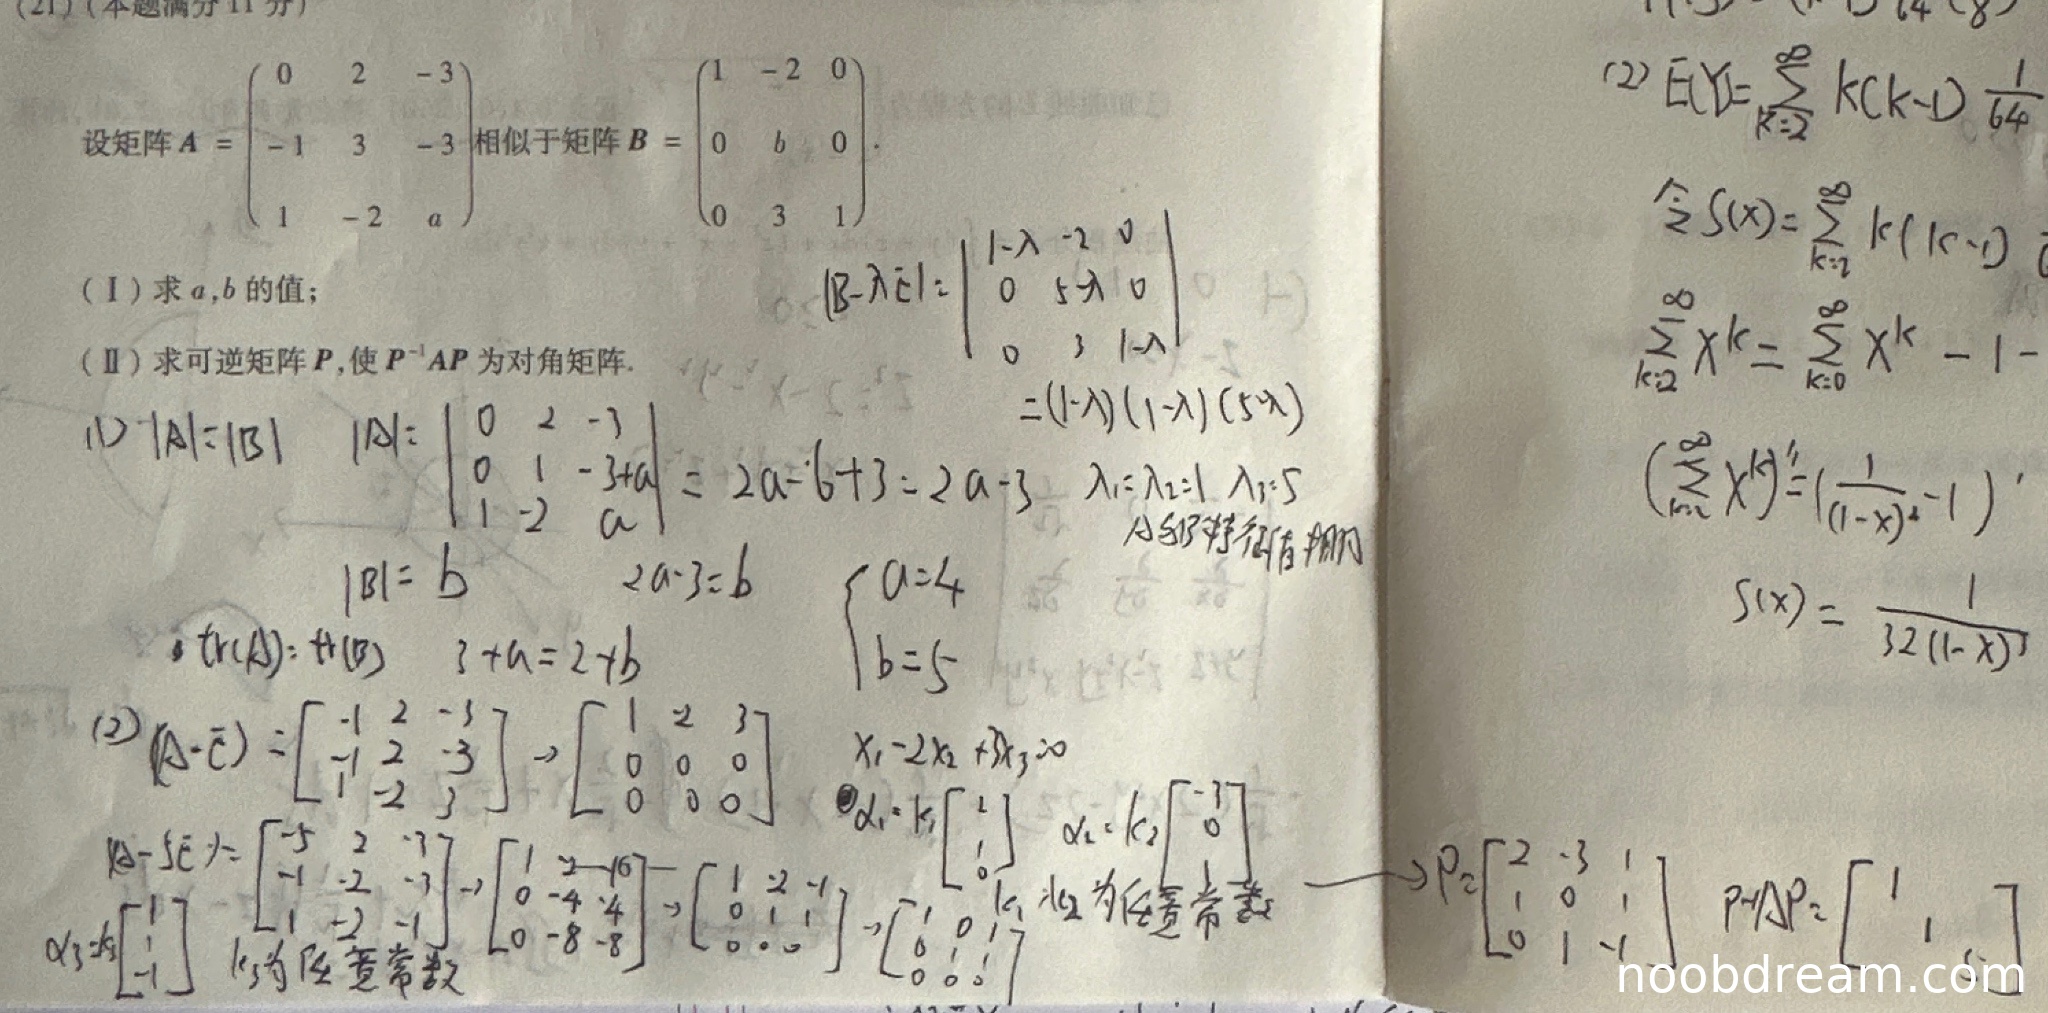 (21) (本题满分 11 分)
设矩阵 A = ( 0 2 -3 ; -1 3 -3 ; 1 -2 a ) 相似于矩阵 B = ( 1 -2 0 ; 0 b 0 ; 0 3 1 ).
(Ⅰ) 求 a,b 的值;
(Ⅱ) 求可逆矩阵 P,使 P⁻¹AP 为对角矩阵.
|B-λE|= | 1-λ -2 0 ; 0 5-λ 0 ; 0 3 1-λ |
=(1-λ)(1-λ)(5-λ)
λ₁=λ₂=1 λ₃=5
(1) |A|=|B| |A|= | 0 2 -3 ; 0 1 -3+a ; 1 -2 a | = 2a-6+3=2a-3
|B|= b 2a-3=b { a=4 b=5
tr(A)=tr(B) 3+a=2+b
(2) (A-E) = [ -1 2 -3 ; -1 2 -3 ; 1 -2 3 ] → [ 1 -2 3 ; 0 0 0 ; 0 0 0 ] x₁-2x₂+3x₃=0
α₁=k₁ [ 2 ; 1 ; 0 ] α₂=k₂ [ -3 ; 0 ; 1 ] k₁ k₂为任意常数
(A-5E)= [ -5 2 -3 ; -1 -2 -3 ; 1 -2 -1 ] → [ 0 -4 -4 ; 0 -8 -8 ] → [ 1 -2 -1 ; 0 1 1 ; 0 0 0 ] → [ 1 0 1 ; 0 1 1 ; 0 0 0 ]
α₃=k₃ [ 1 ; 1 ; -1 ] k₃为任意常数
→ P= [ 2 -3 1 ; 1 0 1 ; 0 1 -1 ] P⁻¹AP= [ 1 ; 1 ; 5 ]
(2) E(Y)= ∑_{k=2}^{∞} k(k-1) 1/64
令 S(x)= ∑_{k=2}^{∞} k(k-1)
∑_{k=2}^{∞} x^k = ∑_{k=0}^{∞} x^k - 1 -
S(x) = 1/(32(1-x)³)
noobdream.com